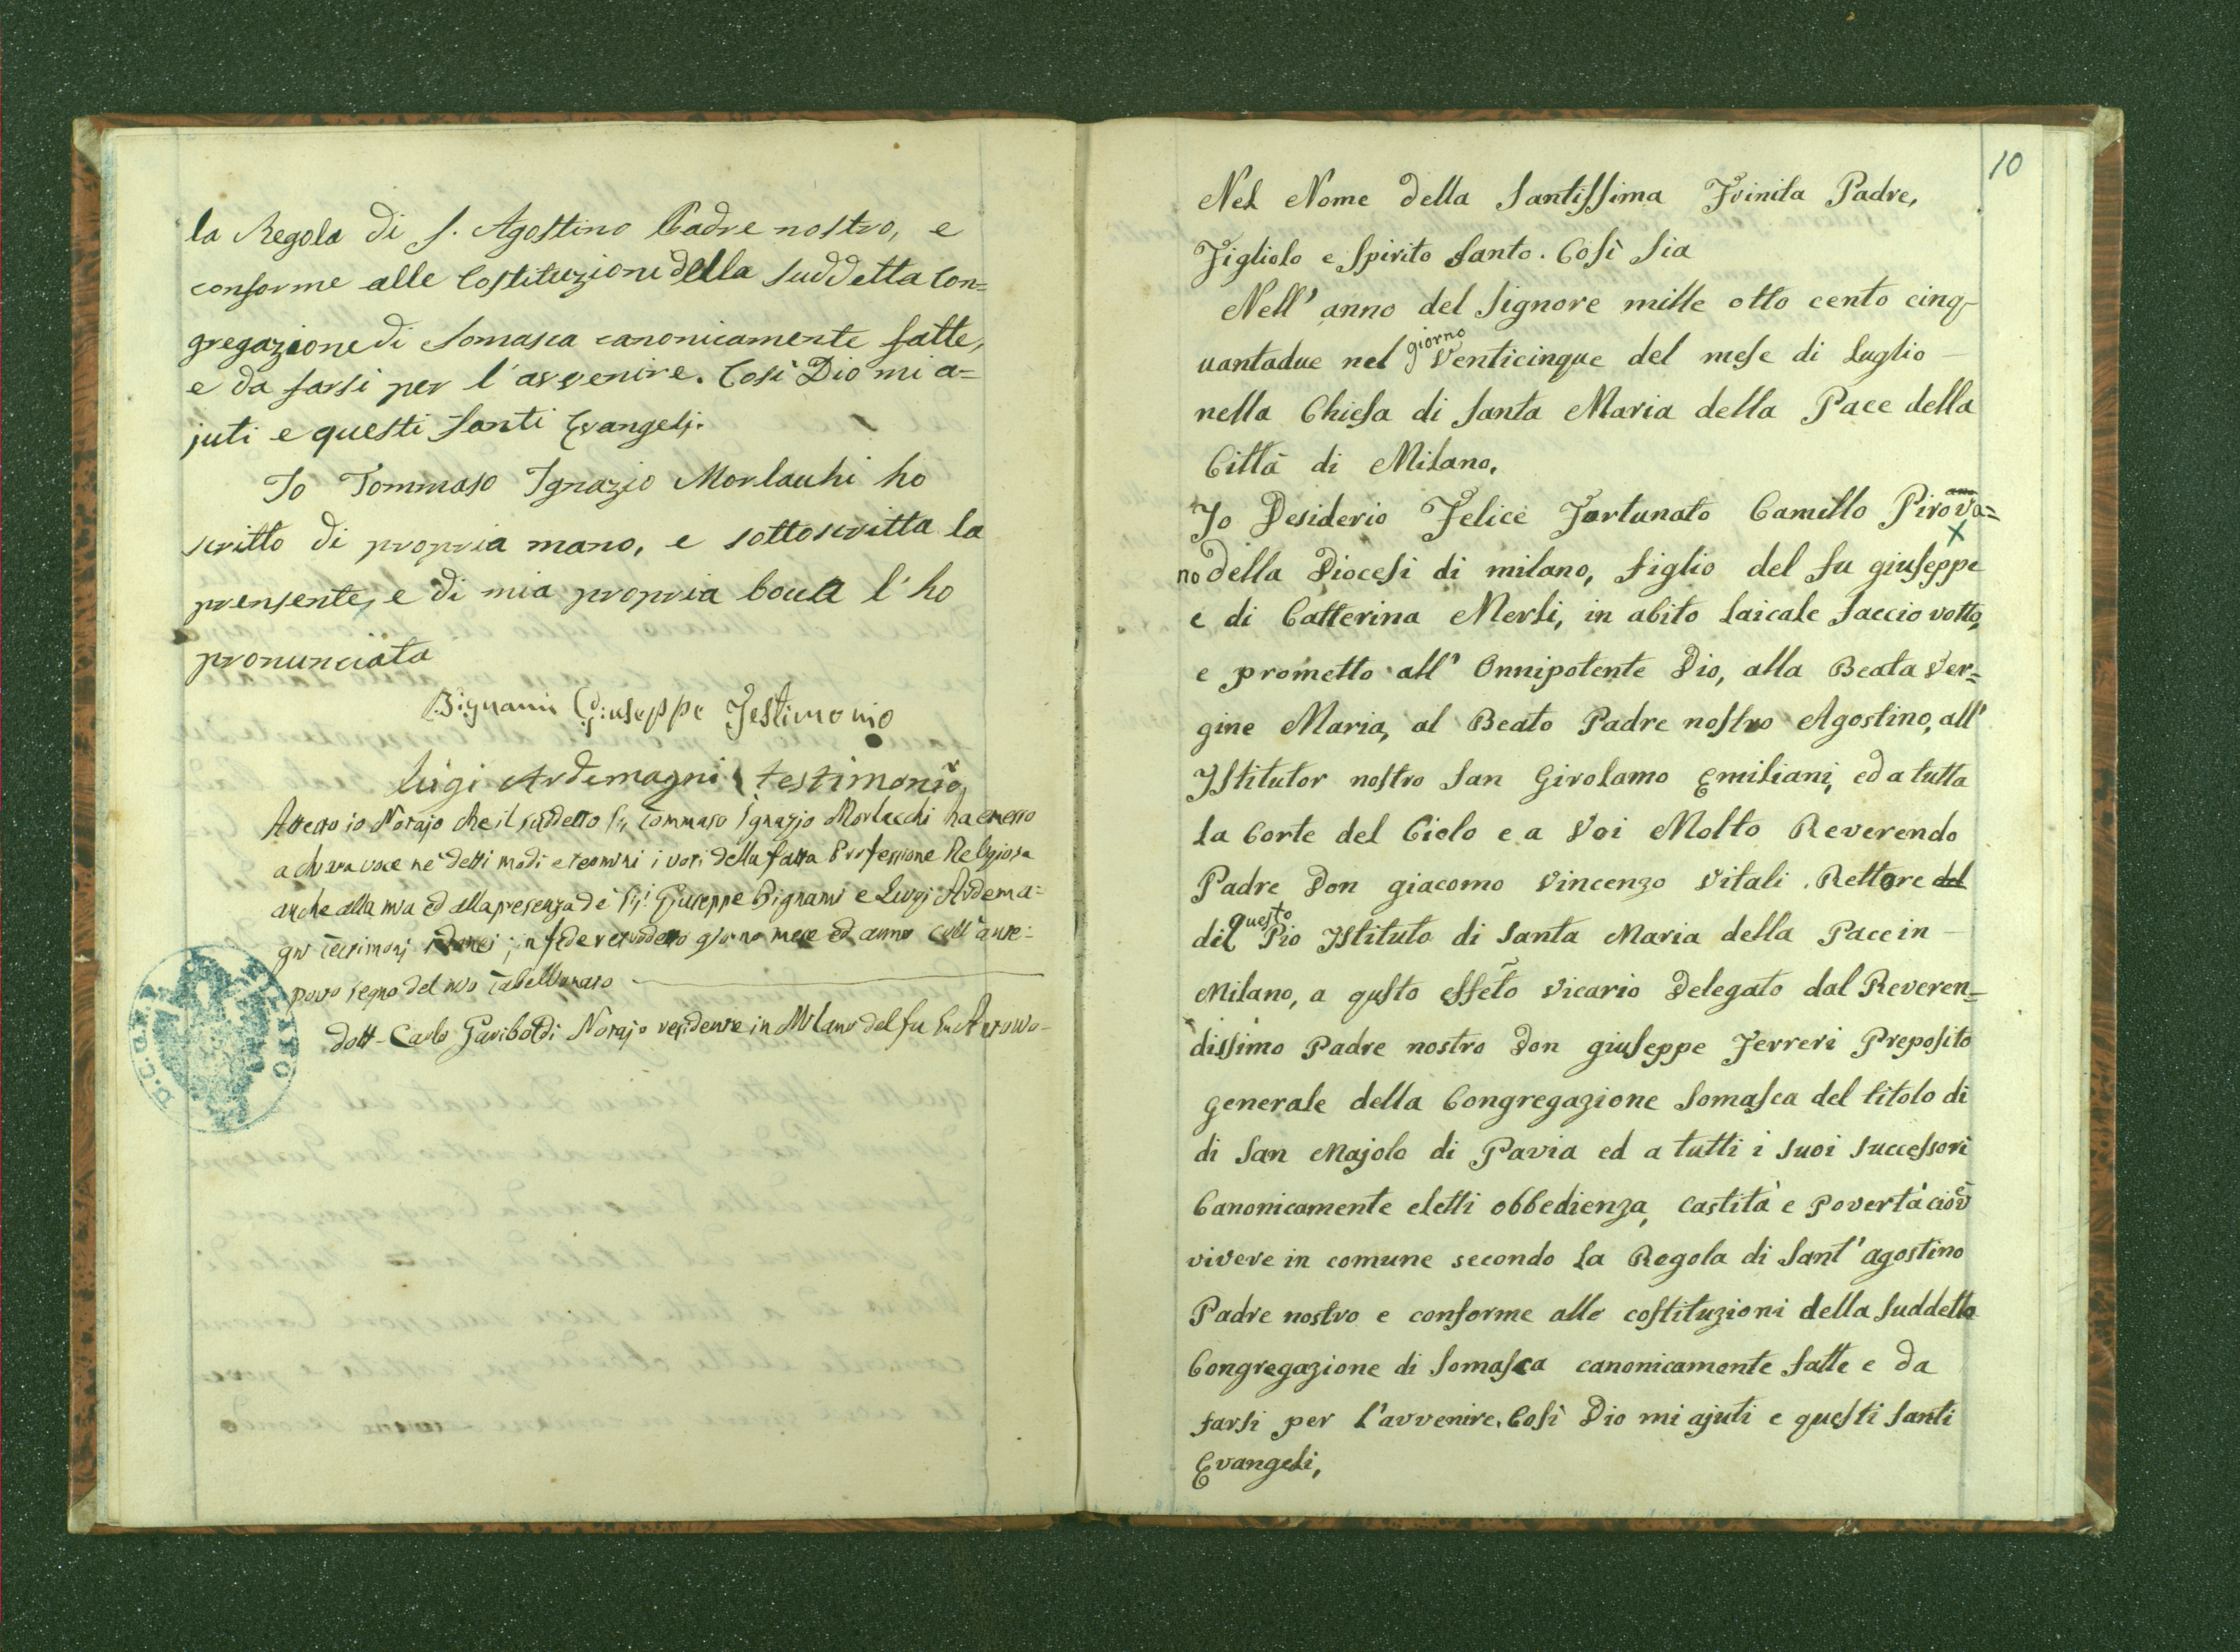 la Regola di S. Agostino Padre nostro, e
conforme alle Costituzioni della suddetta Con=
gregazione di Somasca canonicamente fatte,
e da farsi per l'avvenire. Così Dio mi a=
juti e questi Santi Evangelj.
Io Tommaso Ignazio Morlacchi ho
scritto di propria mano, e sottoscritta la
prensente, e di mia propria bocca l'ho
pronunciata
Bignami Giuseppe Testimonio
Luigi Ardemagni testimonio
Attesto io Notajo che il suddetto Sig Tommaso Ignazio Morlacchi ha emesso
a chiara voce ne' detti modi e termini i voti della fatta Professione Religiosa
anche alla mia ed alla presenza de' Sigi Giuseppe Bignami e Luigi Ardema=
gni testimonj idonei; in fede giorno mese ed anno coll'ante=
posto segno del mio Tabellionato
Dott. Carlo Gariboldi Notajo residente in Milano del fu
10
Nel Nome della Santissima Trinita Padre,
Figliolo e Spirito Santo. Così Sia
Nell' anno del Signore mille otto cento cinq-
uantadue nel giorno Venticinque del mese di Luglio
nella Chiesa di Santa Maria della Pace della
Città di Milano,
Io Desiderio Felice Fortunato Camillo Pirova=
no della Diocesi di milano, figlio del fu giuseppe
e di Catterina Mersi, in abito laicale faccio votto,
e prometto all' Onnipotente Dio, alla Beata Ver=
gine Maria, al Beato Padre nostro Agostino, all'
Istitutor nostro San Girolamo Emiliani, ed a tutta
la Corte del Cielo e a Voi Molto Reverendo
Padre Don giacomo Vincenzo Vitali Rettore del
del questo Pio Istituto di Santa Maria della Pace in
Milano, a qusto effeto Vicario Delegato dal Reveren=
dissimo Padre nostro Don giuseppe Ferreri Preposito
generale della Congregazione Somasca del titolo di
di San Majolo di Pavia ed a tutti i suoi successori
Canonicamente eletti obbedienza, castità e povertà cioè
vivere in comune secondo la Regola di Sant'agostino
Padre nostro e conforme alle costituzioni della suddetta
Congregazione di Somasca canonicamente fatte e da
farsi per l'avvenire. Così Dio mi ajuti e questi Santi
Evangeli,